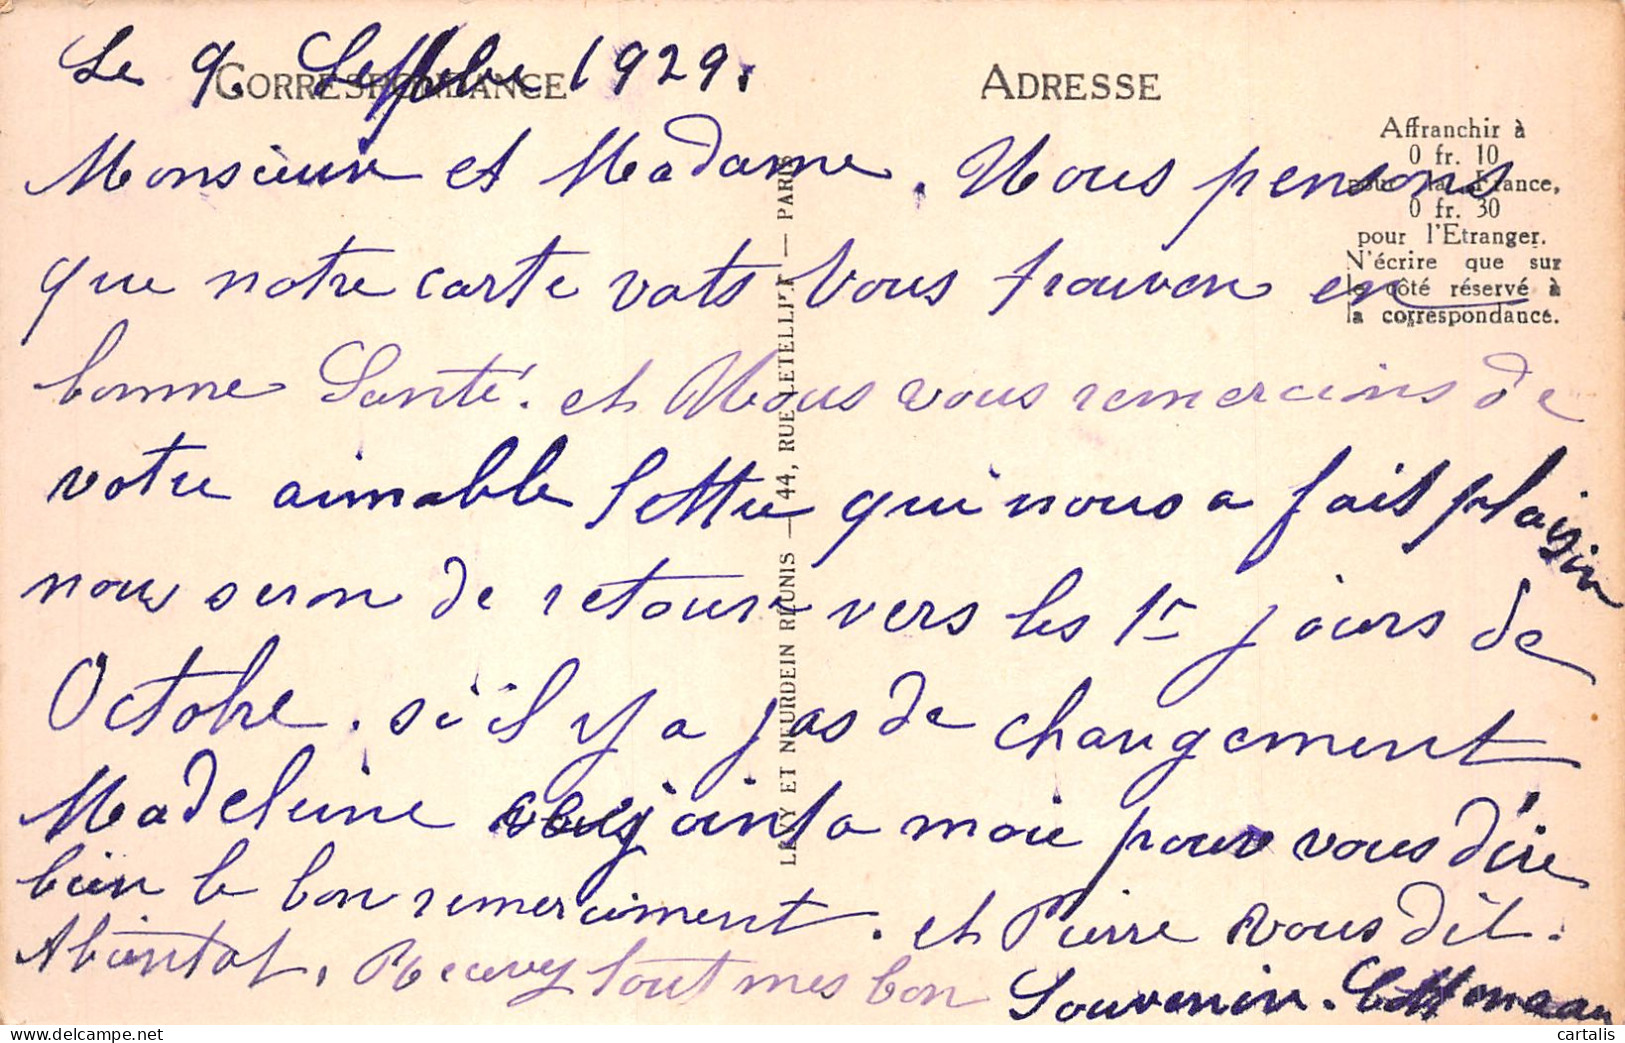 CORRESPONDANCE
ADRESSE
Affranchir à
0 fr. 10
pour la France,
0 fr. 30
pour l'Etranger.
N'écrire que sur
le côté réservé à
la correspondance.
LÉVY ET NEURDEIN RÉUNIS — 44, RUE LETELLIER — PARIS
Le 9. Sepbre 1929.
Monsieur et Madame. Nous pensons
que notre carte vats vous trouver en
bonne Santé. et Nous vous remercions de
votre aimable lettre qui nous a fait plaisir
nous seron de retour vers les 1r jours de
Octobre. si il y a pas de changement
Madeleine joint a moi pour vous dire
bien le bon remerciment. et Pierre vous dit.
Abientot. Recevez tout mes bon
Souvenir.
cartalis